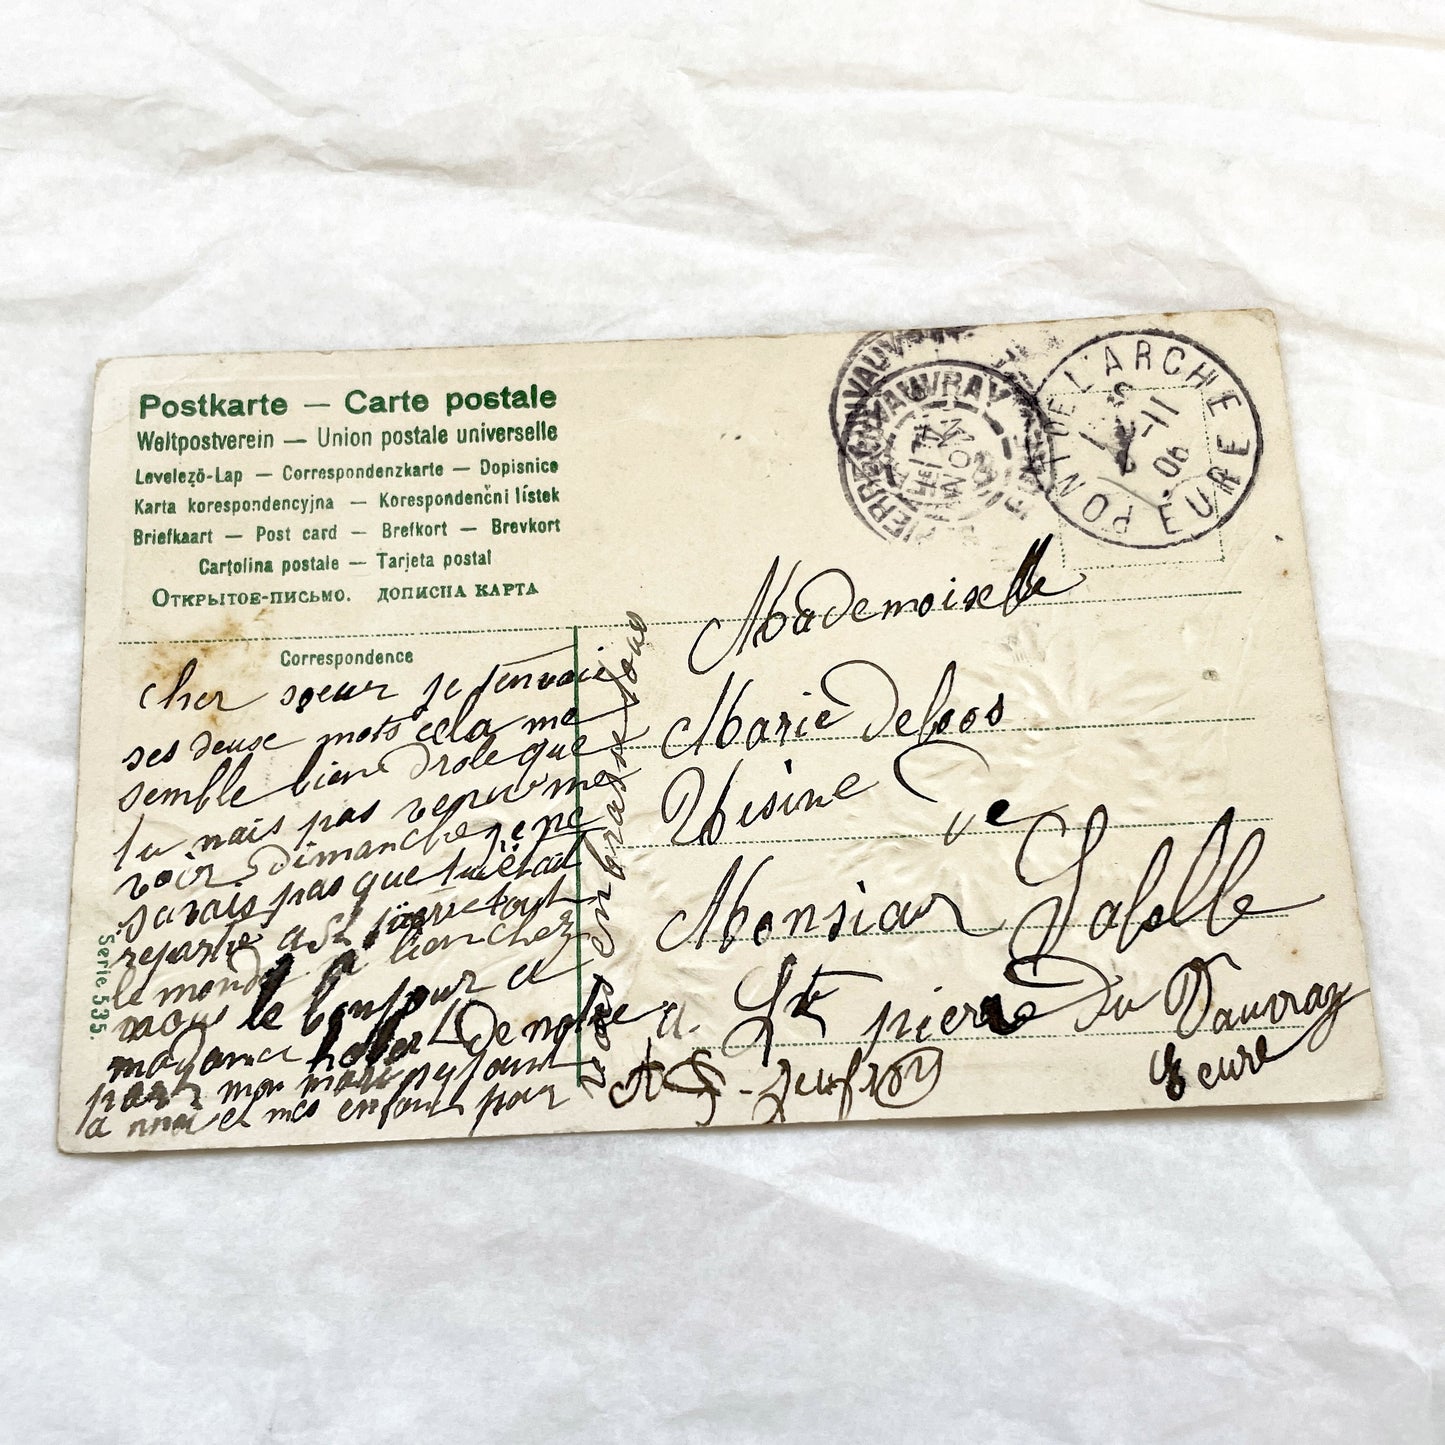 Postkarte — Carte postale
Weltpostverein — Union postale universelle
Levelező-Lap — Correspondenzkarte — Dopisnice
Karta korespondencyjna — Korespondenční lístek
Briefkaart — Post card — Brefkort — Brevkort
Cartolina postale — Tarjeta postal
Открытое-письмо. дописна карта
Correspondence
cher soeur je t'envoie
ses deuse mots cela me
semble bien drole que
tu nais pas venur me
voir Dimanche je ne
savais pas que tu étai
repartie a St pierre tout
le monde a bien chez
nous le bonjour a
madame de notre
par mon mari
a moi et mes enfant pour
enbrasse tous
Serie 535.
PONT DE L'ARCHE
11
06
EURE
VAUVRAY
Mademoiselle
Marie Deboos
Usine De
Monsieur Labelle
a. St pierre Du Vauvray
Eeure